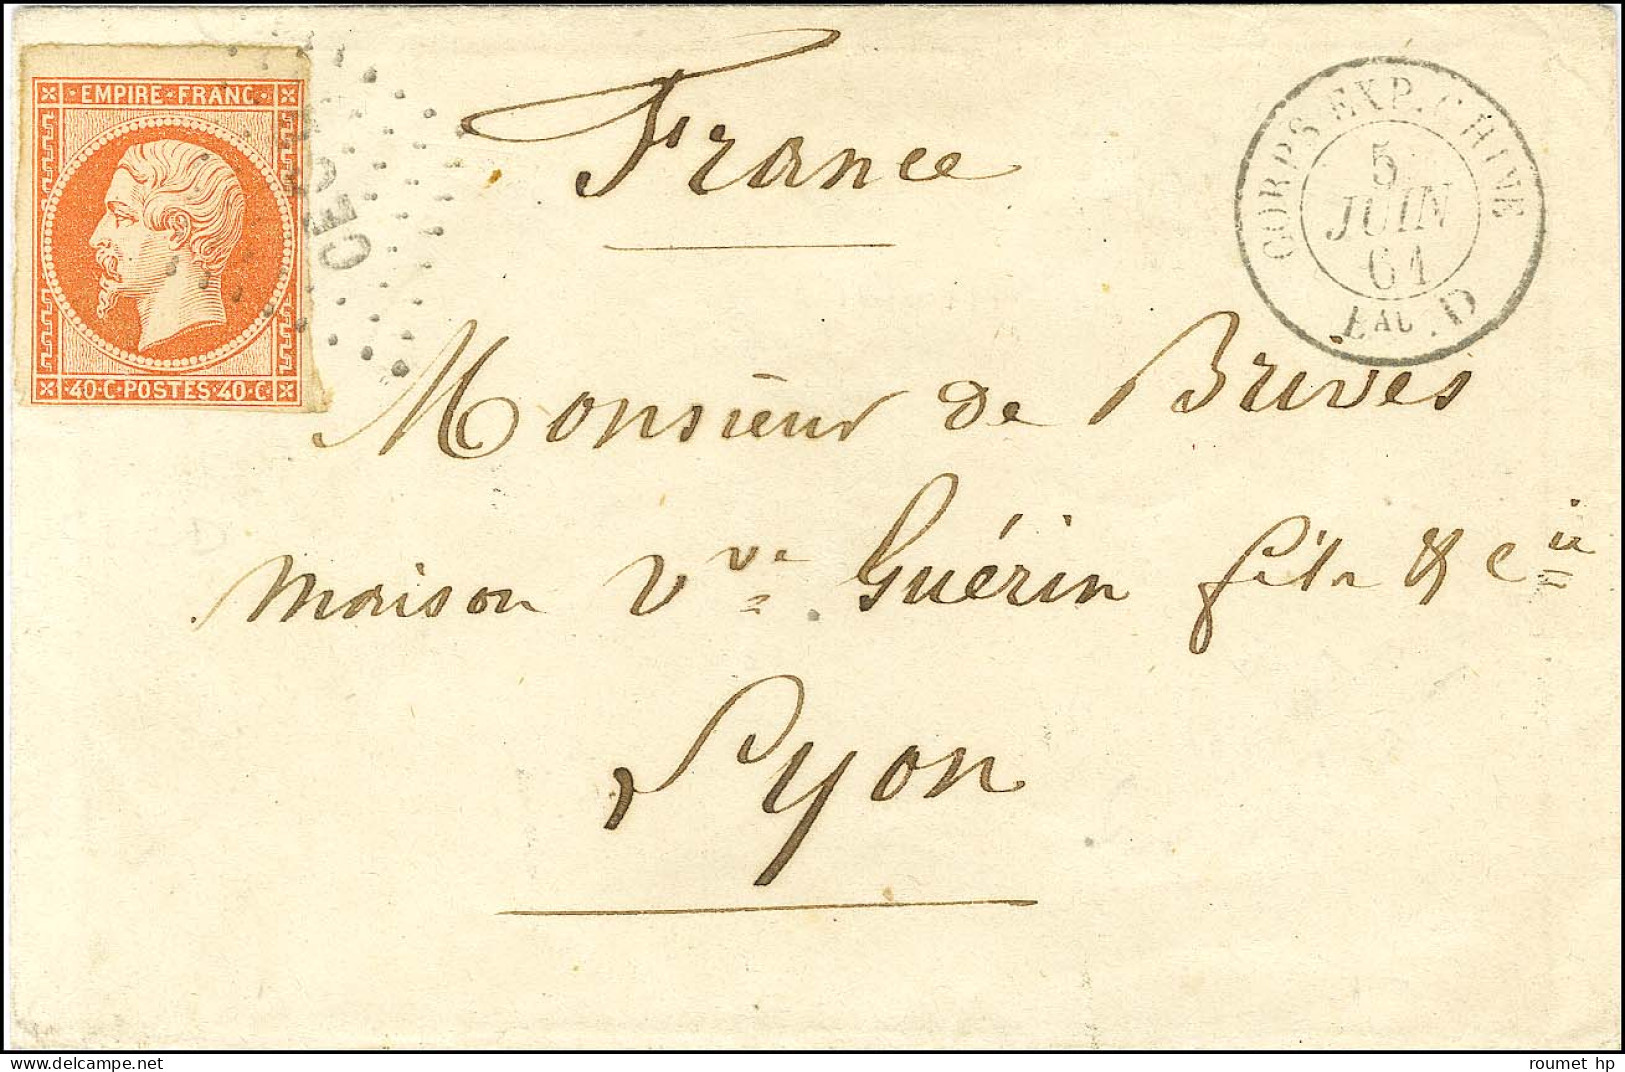 EMPIRE FRANC
40 C POSTES 40 C
France
CORPS EXP. CHINE
5
JUIN
61
Bau. D
Monsieur de Brives
maison Vve Guérin fils & Cie
Lyon
delcampe.net
roumet hp